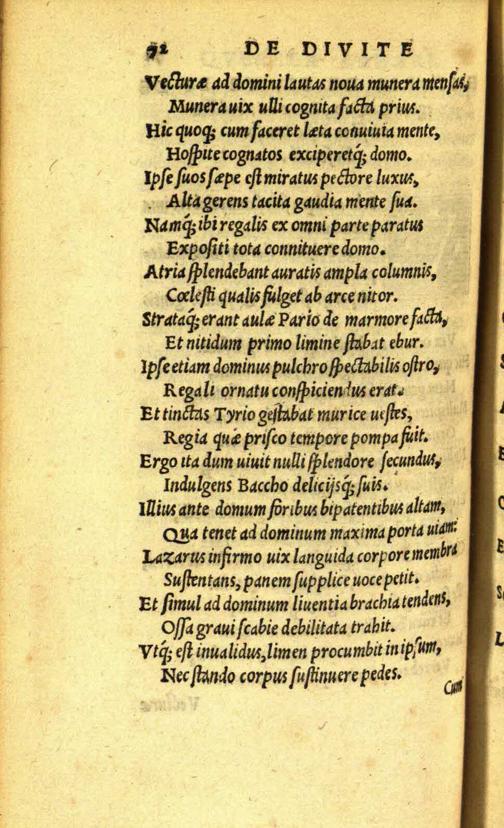 92 DE DIVITE
Vecturæ ad domini lautas noua munera mensas,
Munera uix ulli cognita facta prius.
Hic quoq; cum faceret læta conuiuia mente,
Hospite cognatos exciperetq́; domo.
Ipse suos sæpe est miratus pectore luxus,
Alta gerens tacita gaudia mente sua.
Namq́; ibi regalis ex omni parte paratus
Expositi tota connituere domo.
Atria splendebant auratis ampla columnis,
Cœlesti qualis fulget ab arce nitor.
Strataq́; erant aulæ Pario de marmore facta,
Et nitidum primo limine stabat ebur.
Ipse etiam dominus pulchro spectabilis ostro,
Regali ornatu conspiciendus erat.
Et tinctas Tyrio gestabat murice uestes,
Regia quæ prisco tempore pompa fuit.
Ergo ita dum uiuit nulli splendore secundus,
Indulgens Baccho delicijsq́; suis.
Illius ante domum foribus bipatentibus altam,
Qua tenet ad dominum maxima porta uiam:
Lazarus infirmo uix languida corpore membra
Sustentans, panem supplice uoce petit.
Et simul ad dominum liuentia brachia tendens,
Ossa graui scabie debilitata trahit.
Vtq́; est inualidus, limen procumbit in ipsum,
Nec stando corpus sustinuere pedes.
Cum